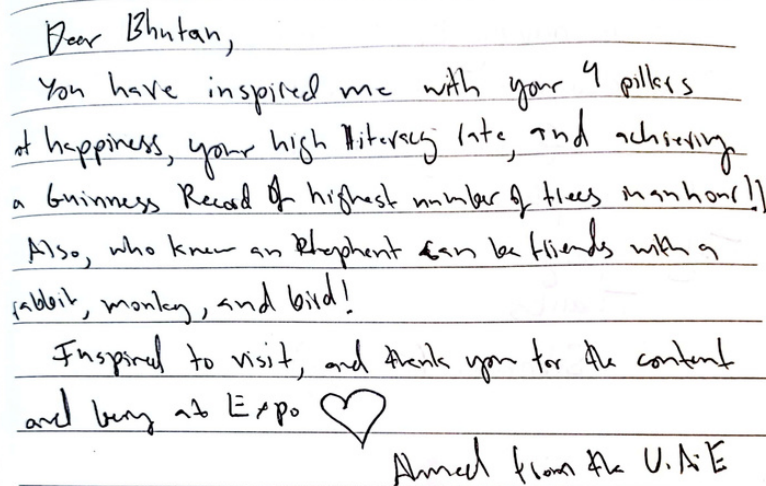 Dear Bhutan,
You have inspired me with your 4 pillars
of happiness, your high literacy rate, and achieving
a Guinness Record of highest number of trees in an hour!!
Also, who knew an Elephent can be friends with a
rabbit, monkey, and bird!
Inspired to visit, and thank you for the content
and being at Expo
Ahmed from the U.A.E